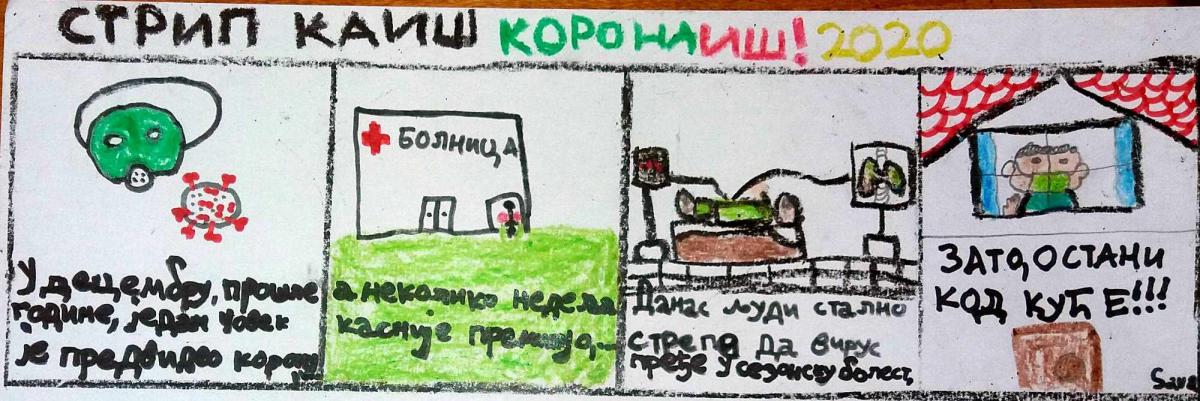 СТРИП КАИШ КОРОНАИШ! 2020
У децембру, прошле
године, један човек
је предвидео корону
БОЛНИЦА
а неколико недеља
касније преминуо,...
Данас људи стално
стрепе да вирус
пређе у сезонску болест,
ЗАТО, ОСТАНИ
КОД КУЋЕ!!!